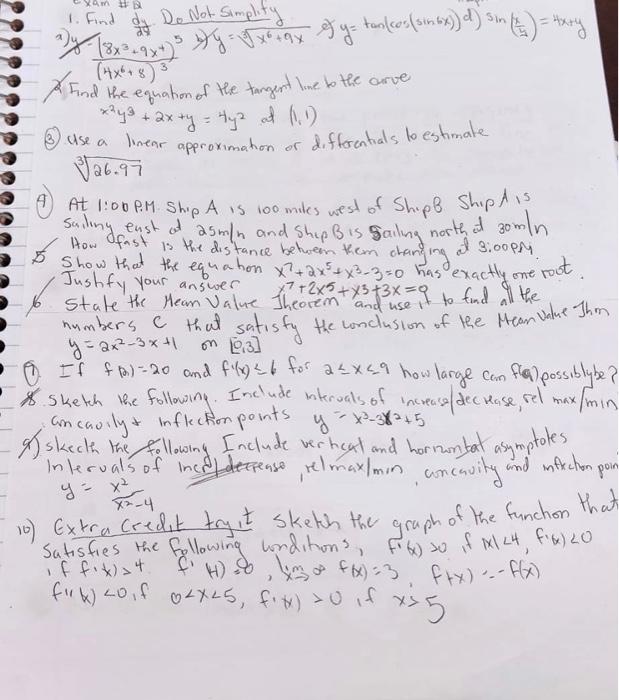 Exam #2
1. Find dy/dx Do Not Simplify
a) y = (8x³+9x+4)⁵ / (4x⁶+8)³ b) y = ∛x⁶+9x c) y = tan(cos(sin6x)) d) sin(x/4) = 4x+y
2 Find the equation of the tangent line to the curve
x²y³ + 2x + y = 4y² at (1,1)
③ Use a linear approximation or differentials to estimate
∛26.97
④ At 1:00 P.M. Ship A is 100 miles west of Ship B Ship A is
Sailing east at 25m/h and Ship B is sailing north at 30m/h
How fast is the distance between them changing at 3:00PM.
5 Show that the equation x⁷+2x⁵+x³-3=0 has exactly one root.
Justify your answer x⁷+2x⁵+x³+3x=9
6 State the Mean Value Theorem and use it to find all the
numbers C that satisfy the conclusion of the Mean Value Thm
y = 2x²-3x+1 on [0,3]
⑦ If f(2)=20 and f'(x)≤6 for 2≤x≤9 how large can f(9) possibly be?
8. Sketch the following. Include intervals of increase/decrease, rel max/min
concavity & inflection points y = x³-3x²+5
9) Skecth the following Include vertical and horizontal asymptotes
Intervals of Inc/decrease, rel max/min, concavity and inflection poin
y = x² / x²-4
10) Extra Credit try it Sketch the graph of the function that
Satisfies the following conditions, f'(x) >0 if |x|<4, f'(x)<0
if f'(x)>4. lim f(x)=3, f(-x) = -f(x)
f''(x) <0, if 0<x<5, f''(x) >0 if x>5